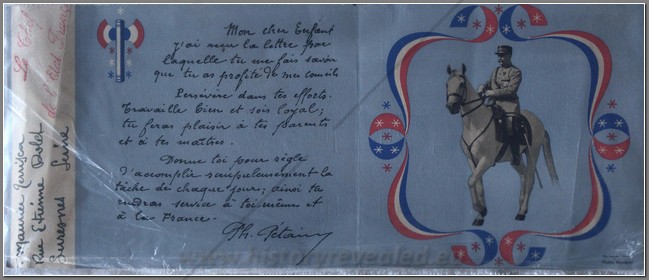 Le Chef
de l'Etat Français
Maurice
Rue Etienne Dolet
Suresnes Seine
Mon cher Enfant
j'ai reçu la lettre par
laquelle tu me fais savoir
que tu as profité de mes conseils
Persévère dans tes efforts.
Travaille bien et sois loyal;
tu feras plaisir à tes parents
et à tes maîtres.
Donne toi pour règle
d'accomplir scrupuleusement la
tâche de chaque jour; ainsi tu
rendras service à toi même et
à la France.
Ph. Pétain
www.historyrevealed.e